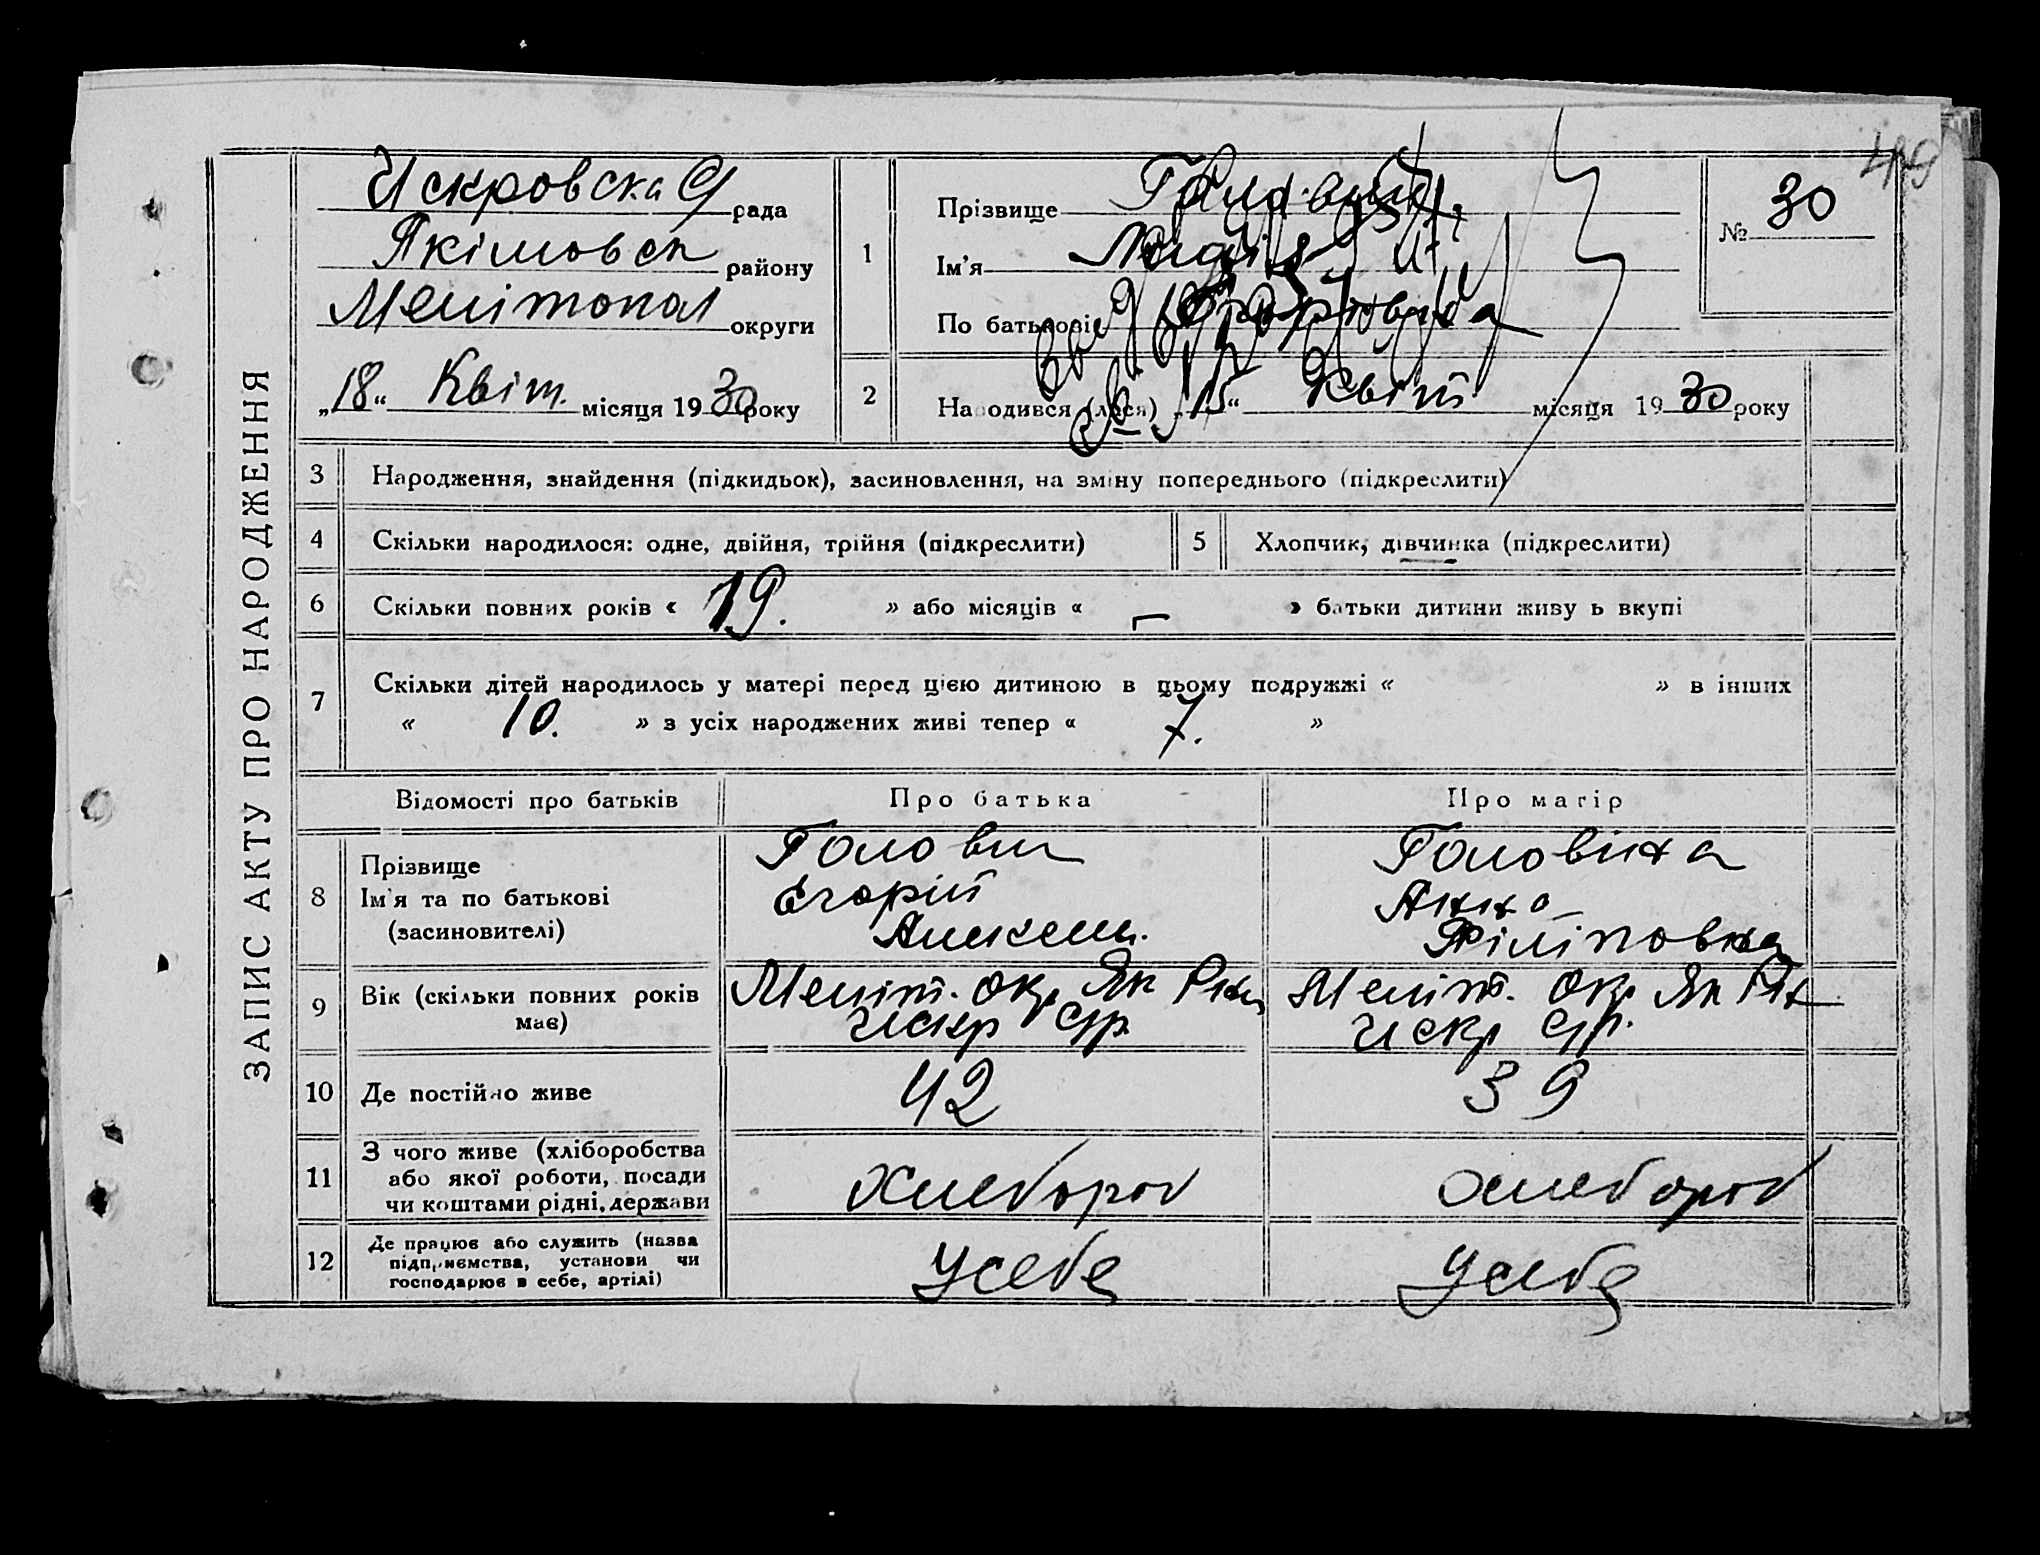 49
Искровская рада
Якімовск району
Мелітопол округи
„18“ Квіт. місяця 1930 року
1
Прізвище
Ім’я
По батькові
№ 30
2
Народився (лася) „15“ Квіт місяця 1930 року
ЗАПИС АКТУ ПРО НАРОДЖЕННЯ
3 Народження, знайдення (підкидьок), засиновлення, на зміну попереднього (підкреслити)
4 Скільки народилося: одне, двійня, трійня (підкреслити)
5 Хлопчик, дівчинка (підкреслити)
6 Скільки повних років « 19. » або місяців « – » батьки дитини живуть вкупі
7 Скільки дітей народилось у матері перед цією дитиною в цьому подружжі « » в інших
« 10. » з усіх народжених живі тепер « 7. »
Відомості про батьків
Про батька
Про матір
8 Прізвище
Ім’я та по батькові
(засиновителі)
Головин
Егорій
Алексеев.
Головина
Анна
Філіповна
9 Вік (скільки повних років
має)
Меліт. окр. Як Рна
Искр с/р.
Меліт. окр. Як Рн
Искр с/р.
10 Де постійно живе
42
39
11 З чого живе (хліборобства
або якої роботи, посади
чи коштами рідні, держави
Хлебороб
Хлебороб
12 Де працює або служить (назва
підприємства, установи чи
господарює в себе, артілі)
У себе
У себе